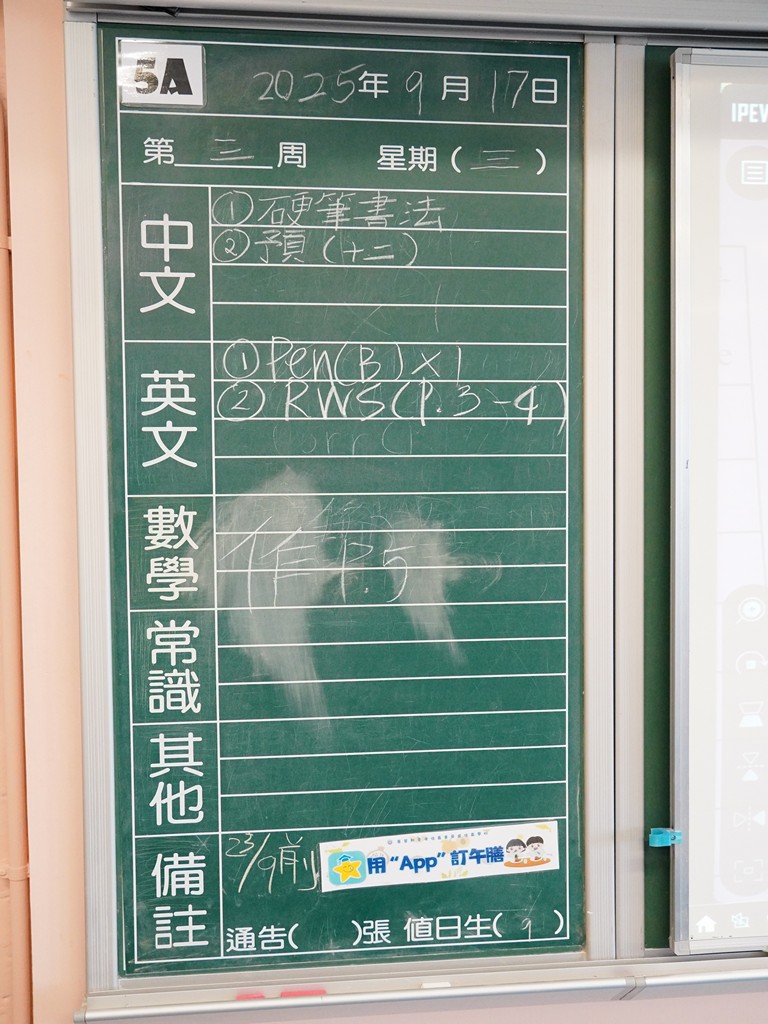 5A
2025年9月17日
第三周 星期(三)
中文
①硬筆書法
②預(十二)
英文
①Pen(B)×1
②RWS(P.3-4)
Corr
數學
作P.5
常識
其他
備註
23/9前
用“App”訂午膳
通告( )張 值日生(9)
IPEV